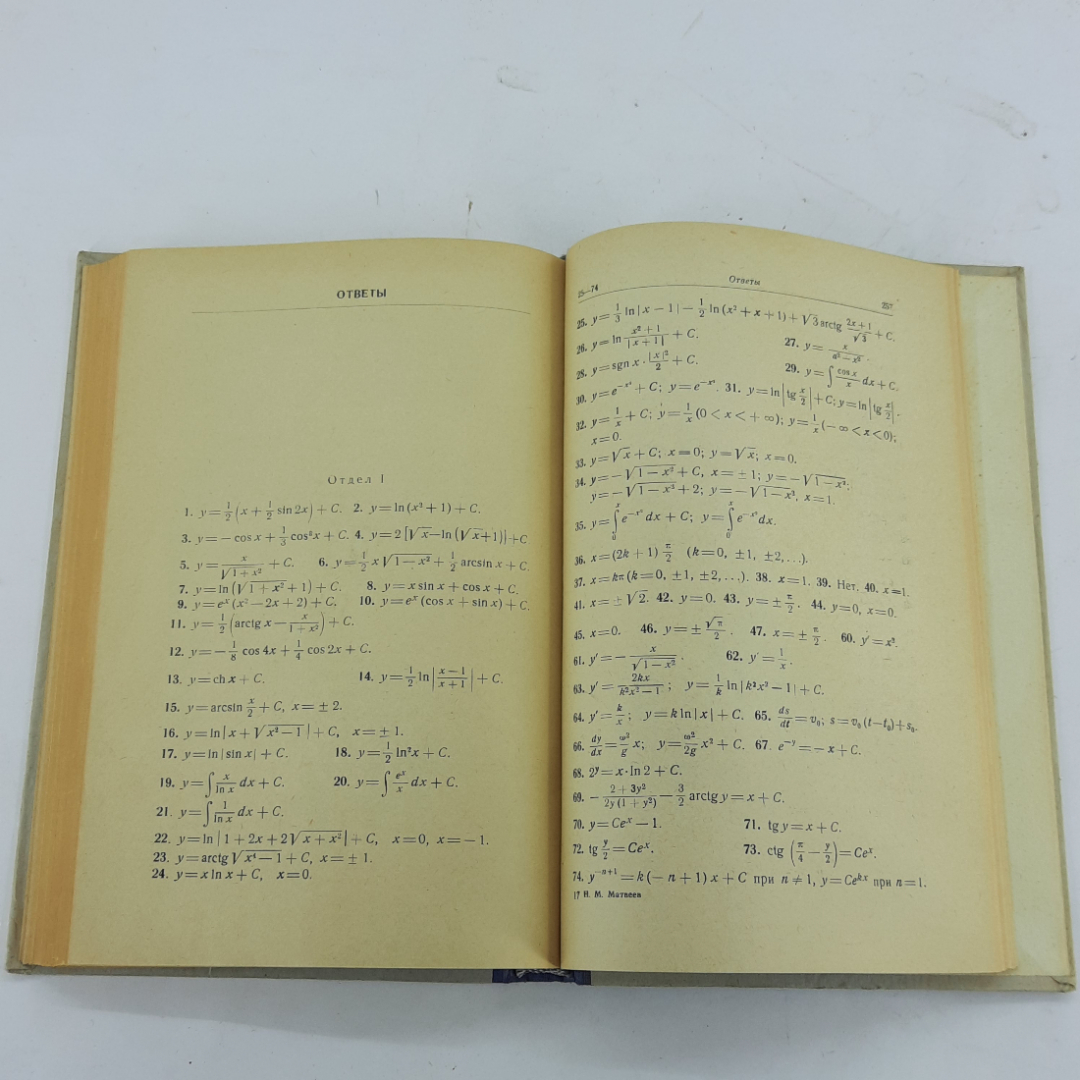 ОТВЕТЫ
Отдел I
1. y=½(x+½ sin 2x)+C. 2. y=ln(x²+1)+C.
3. y=−cos x+⅓cos³x+C. 4. y=2[√x−ln(√x+1)]+C
5. y=x/√(1+x²)+C. 6. y=½x√(1−x²)+½ arcsin x+C.
7. y=ln(√(1+x²)+1)+C. 8. y=x sin x+cos x+C.
9. y=eˣ(x²−2x+2)+C. 10. y=eˣ(cos x+sin x)+C.
11. y=½(arctg x−x/(1+x²))+C.
12. y=−⅛ cos 4x+¼ cos 2x+C.
13. y=ch x+C. 14. y=½ ln|(x−1)/(x+1)|+C.
15. y=arcsin x/2+C, x=±2.
16. y=ln|x+√(x²−1)|+C, x=±1.
17. y=ln|sin x|+C. 18. y=½ ln²x+C.
19. y=∫ x/ln x dx+C. 20. y=∫ eˣ/x dx+C.
21. y=∫ 1/ln x dx+C.
22. y=ln|1+2x+2√(x+x²)|+C, x=0, x=−1.
23. y=arctg √(x⁴−1)+C, x=±1.
24. y=x ln x+C, x=0.
25—74 Ответы 257
25. y=⅓ ln|x−1|−½ ln(x²+x+1)+√3 arctg (2x+1)/√3+C.
26. y=ln (x²+1)/|x+1|+C. 27. y=x/(a²−x²).
28. y=sgn x·|x|²/2+C. 29. y=∫ cos x/x dx+C.
30. y=e^(−x²)+C; y=e^(−x²). 31. y=ln|tg x/2|+C; y=ln|tg x/2|.
32. y=1/x+C; y=1/x (0<x<+∞); y=1/x (−∞<x<0);
x=0.
33. y=√x+C; x=0; y=√x; x=0.
34. y=−√(1−x²)+C, x=±1; y=−√(1−x²);
y=−√(1−x²)+2; y=−√(1−x²), x=1.
35. y=∫₀ˣ e^(−x²) dx+C; y=∫₀ˣ e^(−x²) dx.
36. x=(2k+1) π/2 (k=0, ±1, ±2,...).
37. x=kπ (k=0, ±1, ±2,...). 38. x=1. 39. Нет. 40. x=1.
41. x=±√2. 42. y=0. 43. y=±π/2. 44. y=0, x=0.
45. x=0. 46. y=±√π/2. 47. x=±π/2. 60. y′=x².
61. y′=−x/√(1−x²). 62. y′=1/x.
63. y′=2kx/(k²x²−1); y=1/k ln|k²x²−1|+C.
64. y′=k/x; y=k ln|x|+C. 65. ds/dt=v₀; s=v₀(t−t₀)+s₀.
66. dy/dx=ω²/g x; y=ω²/2g x²+C. 67. e^(−y)=−x+C.
68. 2^y=x·ln 2+C.
69. −(2+3y²)/(2y(1+y²))−3/2 arctg y=x+C.
70. y=Ceˣ−1. 71. tg y=x+C.
72. tg y/2=Ceˣ. 73. ctg (π/4−y/2)=Ceˣ.
74. y^(−n+1)=k(−n+1)x+C при n≠1, y=Ce^(kx) при n=1.
17 Н. М. Матвеев